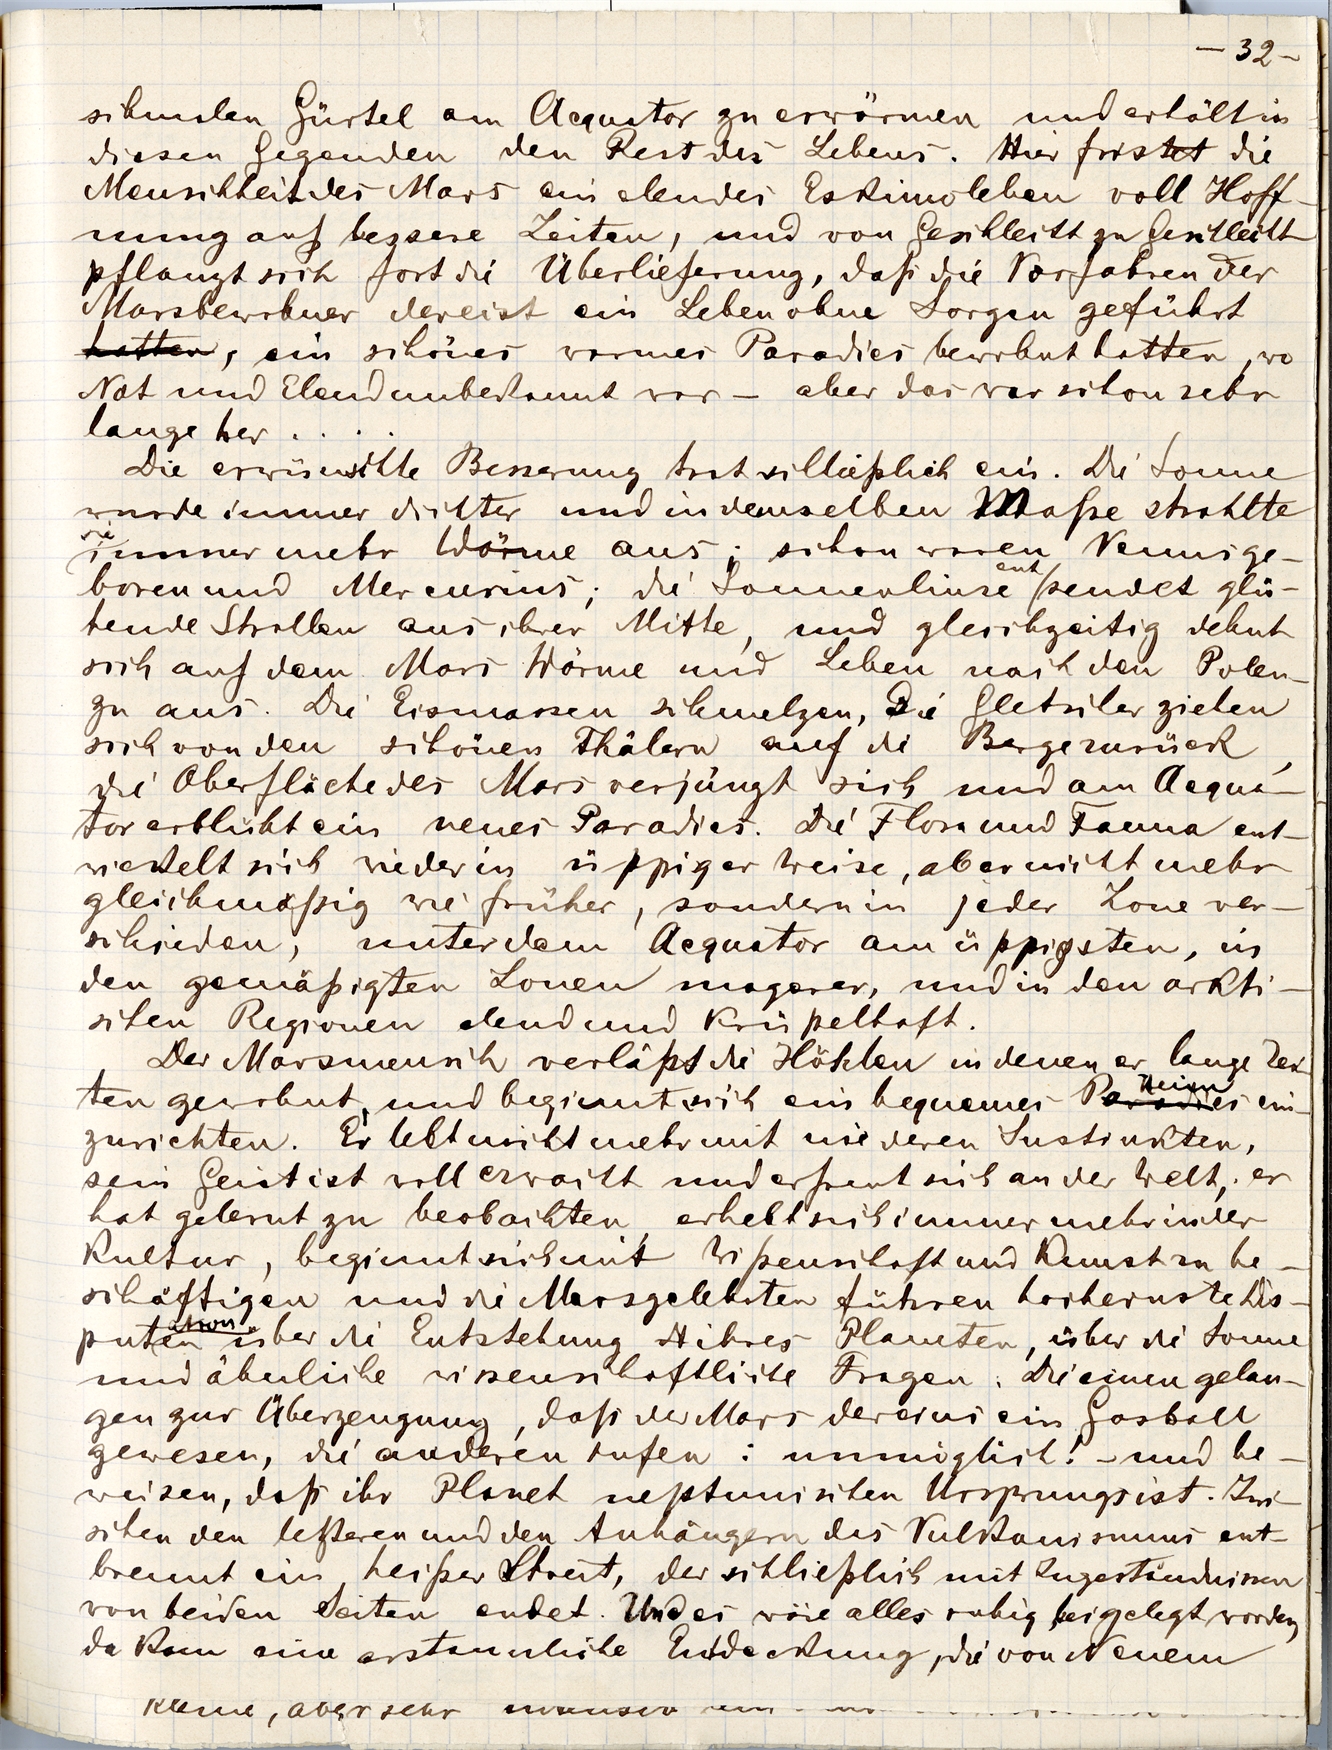 — 32 —
schmalen Gürtel am Aequator zu erwärmen und erhält in
diesen Gegenden den Rest des Lebens. Hier fristet die
Menschheit des Mars ein elendes Eskimoleben voll Hoff-
nung auf bessere Zeiten, und von Geschlecht zu Geschlecht
pflanzt sich fort die Überlieferung, daß die Vorfahren der
Marsbewohner dereist ein Leben ohne Sorgen geführt
hatten, ein schönes warmes Paradies bewohnt hatten, wo
Not und Elend unbekannt war — aber das war schon sehr
lange her . . . .
Die erwünschte Besserung trat schließlich ein. Die Sonne
wurde immer dichter und in demselben Maße strahlte
sie
immer mehr Wärme aus; schon waren Venus ge-
boren und Mercurius; die Sonnenlinse entsendet glü-
hende Strallen aus ihrer Mitte, und gleichzeitig dehnt
sich auf dem Mars Wärme und Leben nach den Polen
zu aus. Die Eismassen schmelzen, Die Gletscher ziehen
sich von den schönen Thälern auf die Berge zurück,
die Oberfläche des Mars verjüngt sich und am Aequa-
tor erblüht ein neues Paradies. Die Flora und Fauna ent-
wickelt sich wieder in üppiger Weise, aber nicht mehr
gleichmäßig wie früher, sondern in jeder Zone ver-
schieden; unter dem Aequator am üppigsten, in
den gemäßigten Zonen magerer, und in den arkti-
schen Regionen elend und krüpelhaft.
Der Marsmensch verläßt die Höhlen in denen er lange Zei-
ten gewohnt, und beginnt sich ein bequemes Paradies Heim ein-
zurichten. Er lebt nicht mehr mit niederen Instinkten,
sein Geist ist voll erwacht und erfreut sich an der Welt; er
hat gelernt zu beobachten, erhebt sich immer mehr in der
Kultur, beginnt sich mit Wißenschaft und Kunst zu be-
schäftigen und die Marsgelehrten führen hochernste Dis-
putationen über die Entstehung ihres Planeten, über die Sonne
und ähnliche wissenschaftliche Fragen. Die einen gelan-
gen zur Überzeugung, daß der Mars dereins ein Gasball
gewesen, die anderen rufen: unmöglich! — und be-
weisen, daß ihr Planet neptunischen Ursprungs ist. Zwi-
schen den letzteren und den Anhängern des Vulkanismus ent-
brennt ein heißer Streit, der schließlich mit Zugeständnissen
von beiden Seiten endet. Und es wäre alles ruhig beigelegt worden,
da kam eine erstaunliche Entdeckung, die von Neuem
kleine, aber sehr